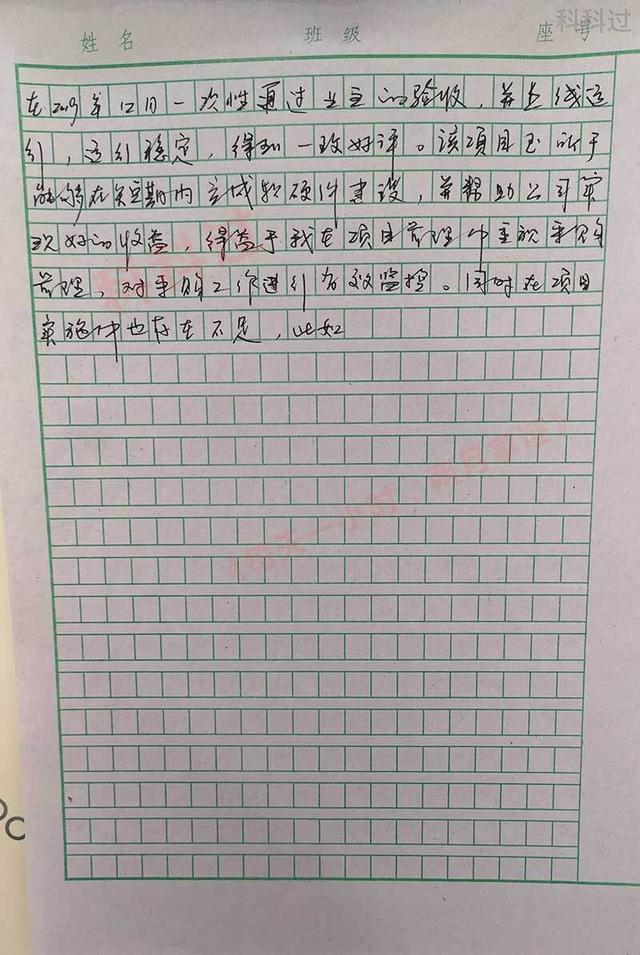 姓名 班级 座号
科科过
在2019年12月一次性通过业主的验收，并上线运
行，运行稳定，得到一致好评。该项目之所于
能够在短期内完成软硬件建设，并帮助公司实
现好的收益，得益于我在项目管理中重视采购
管理，对采购工作进行有效监控。同时在项目
实施中也存在不足，比如
《每天一小时，两月拿证》